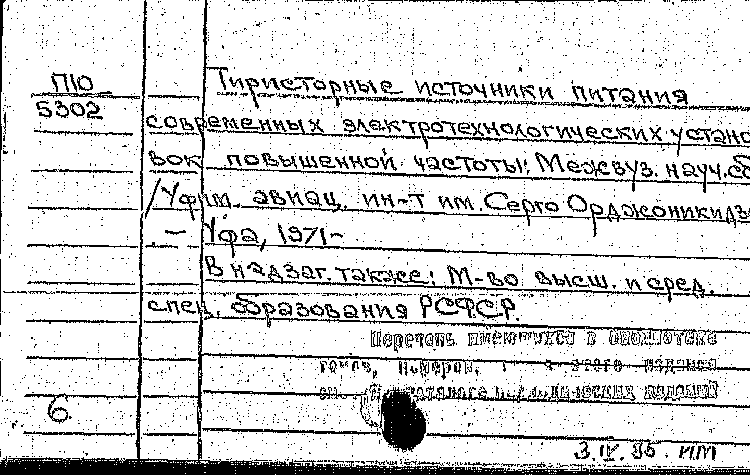 П10
5302
Тиристорные источники питания
современных электротехнологических устано
вок повышенной частоты: Межвуз. науч. сб
/Уфим. авиац. ин-т им. Серго Орджоникидзе
— Уфа, 1971-
В надзаг. также: М-во высш. и сред.
спец. образования РСФСР.
Перечень имеющихся в библиотеке
томов, номеров, этого издания
см. изданий
6
3.IV.86. ИМ